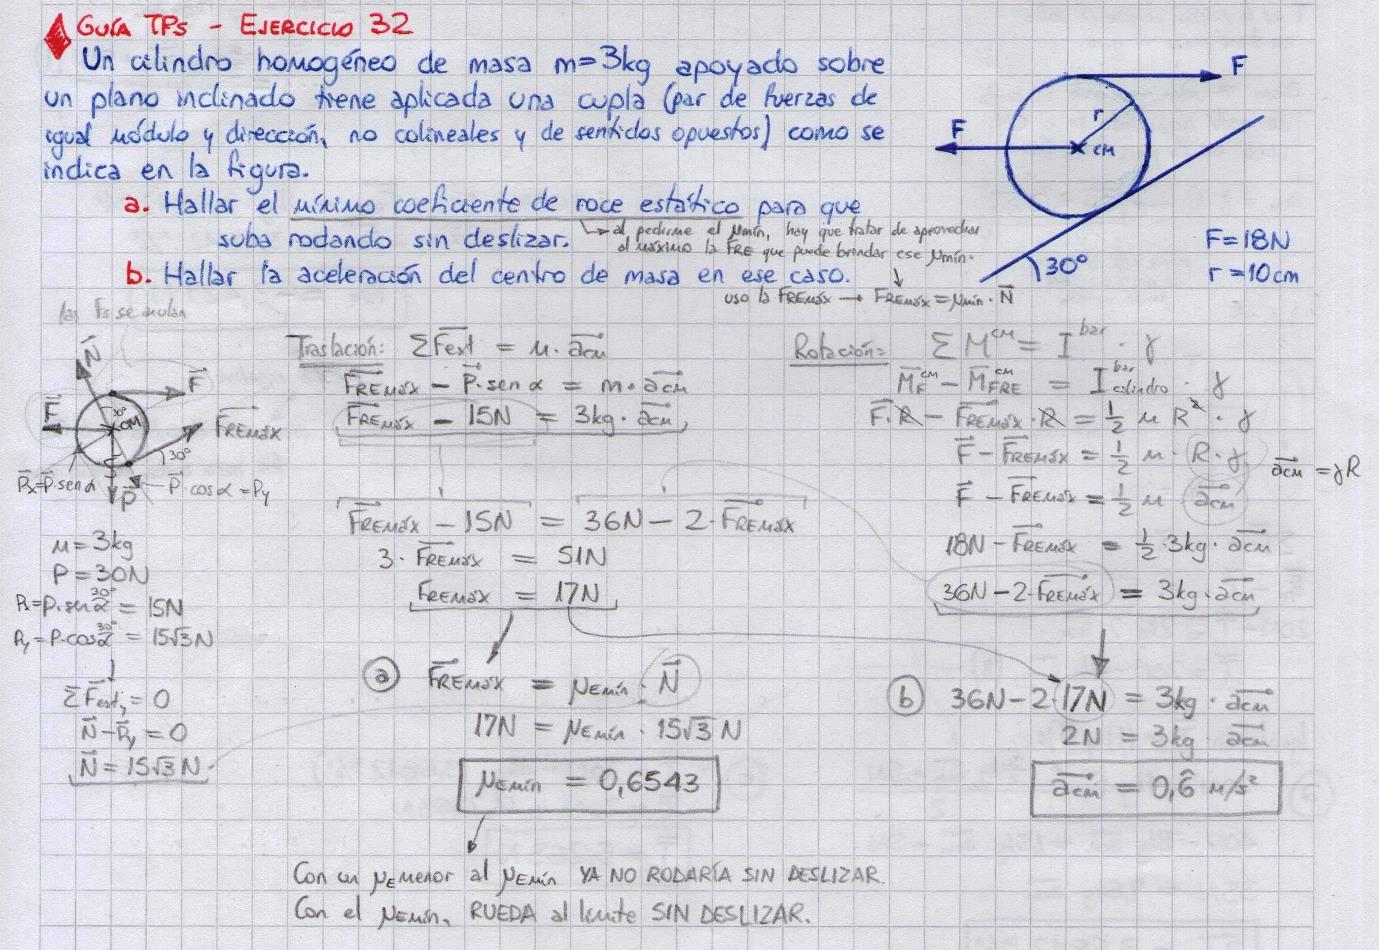 GUÍA TPs - EJERCICIO 32
Un cilindro homogéneo de masa m=3kg apoyado sobre
un plano inclinado tiene aplicada una cupla (par de fuerzas de
igual módulo y dirección, no colineales y de sentidos opuestos) como se
indica en la figura.
a. Hallar el mínimo coeficiente de roce estático para que
suba rodando sin deslizar.
→ al pedirme el μmín, hay que tratar de aprovechar
al máximo la FRE que puede brindar ese μmín.
b. Hallar la aceleración del centro de masa en ese caso.
uso la FREmáx → FREmáx = μmín · N
F
F
r
CM
30°
F=18N
r=10cm
las Fs se anulan
N
F
F
30°
CM
FREmáx
30°
Px=P·sen α
P
P·cos α = Py
m=3kg
P=30N
Px=P·sen α 30° = 15N
Py=P·cos α 30° = 15√3 N
ΣFext y = 0
N-Py = 0
N = 15√3 N
Traslación: ΣFext = m·acm
FREmáx - P·sen α = m·acm
FREmáx - 15N = 3kg·acm
FREmáx - 15N = 36N - 2·FREmáx
3·FREmáx = 51N
FREmáx = 17N
Rotación: ΣM^cm = I^bar · γ
M_F^cm - M_FRE^cm = I^bar cilindro · γ
F·R - FREmáx·R = 1/2 m R² · γ
F - FREmáx = 1/2 m · R·γ
acm = γR
F - FREmáx = 1/2 m acm
18N - FREmáx = 1/2·3kg·acm
36N - 2·FREmáx = 3kg·acm
a FREmáx = μEmín · N
17N = μEmín · 15√3 N
μEmín = 0,6543
b 36N - 2·17N = 3kg · acm
2N = 3kg acm
acm = 0,6̂ m/s²
Con un μE menor al μEmín YA NO RODARÍA SIN DESLIZAR.
Con el μEmín, RUEDA al límite SIN DESLIZAR.